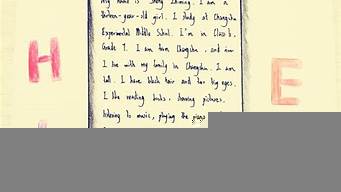 My name is Zhong Zhiming. I am a
thirteen-year-old girl. I study at Changsha
Experimental Middle School. I'm in Class 6,
Grade 7. I am from Changsha, and now
I live with my family in Changsha. I am
tall. I have black hair and two big eyes.
I like reading books, drawing pictures,
listening to music, playing the piano
H
E